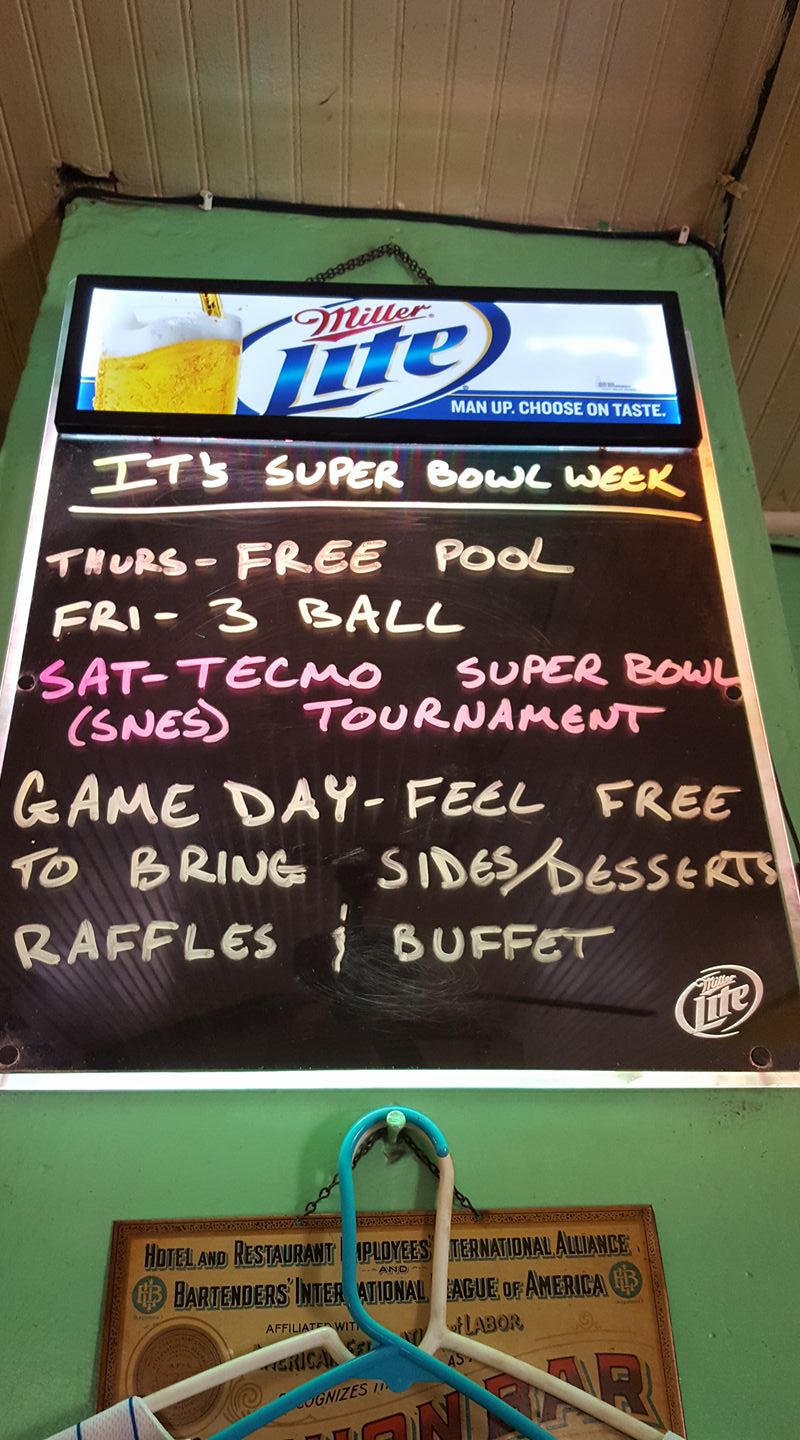 Miller
Lite
MAN UP. CHOOSE ON TASTE.
IT'S SUPER BOWL WEEK
THURS- FREE POOL
FRI- 3 BALL
SAT- TECMO SUPER BOWL
(SNES) TOURNAMENT
GAME DAY- FEEL FREE
TO BRING SIDES/DESSERTS
RAFFLES & BUFFET
Miller
Lite
HOTEL AND RESTAURANT INTERNATIONAL ALLIANCE
AND
BARTENDERS' INTERNATIONAL LEAGUE OF AMERICA
AFFILIATED WITH of LABOR.
AMERICAN AS
RECOGNIZES
BAR